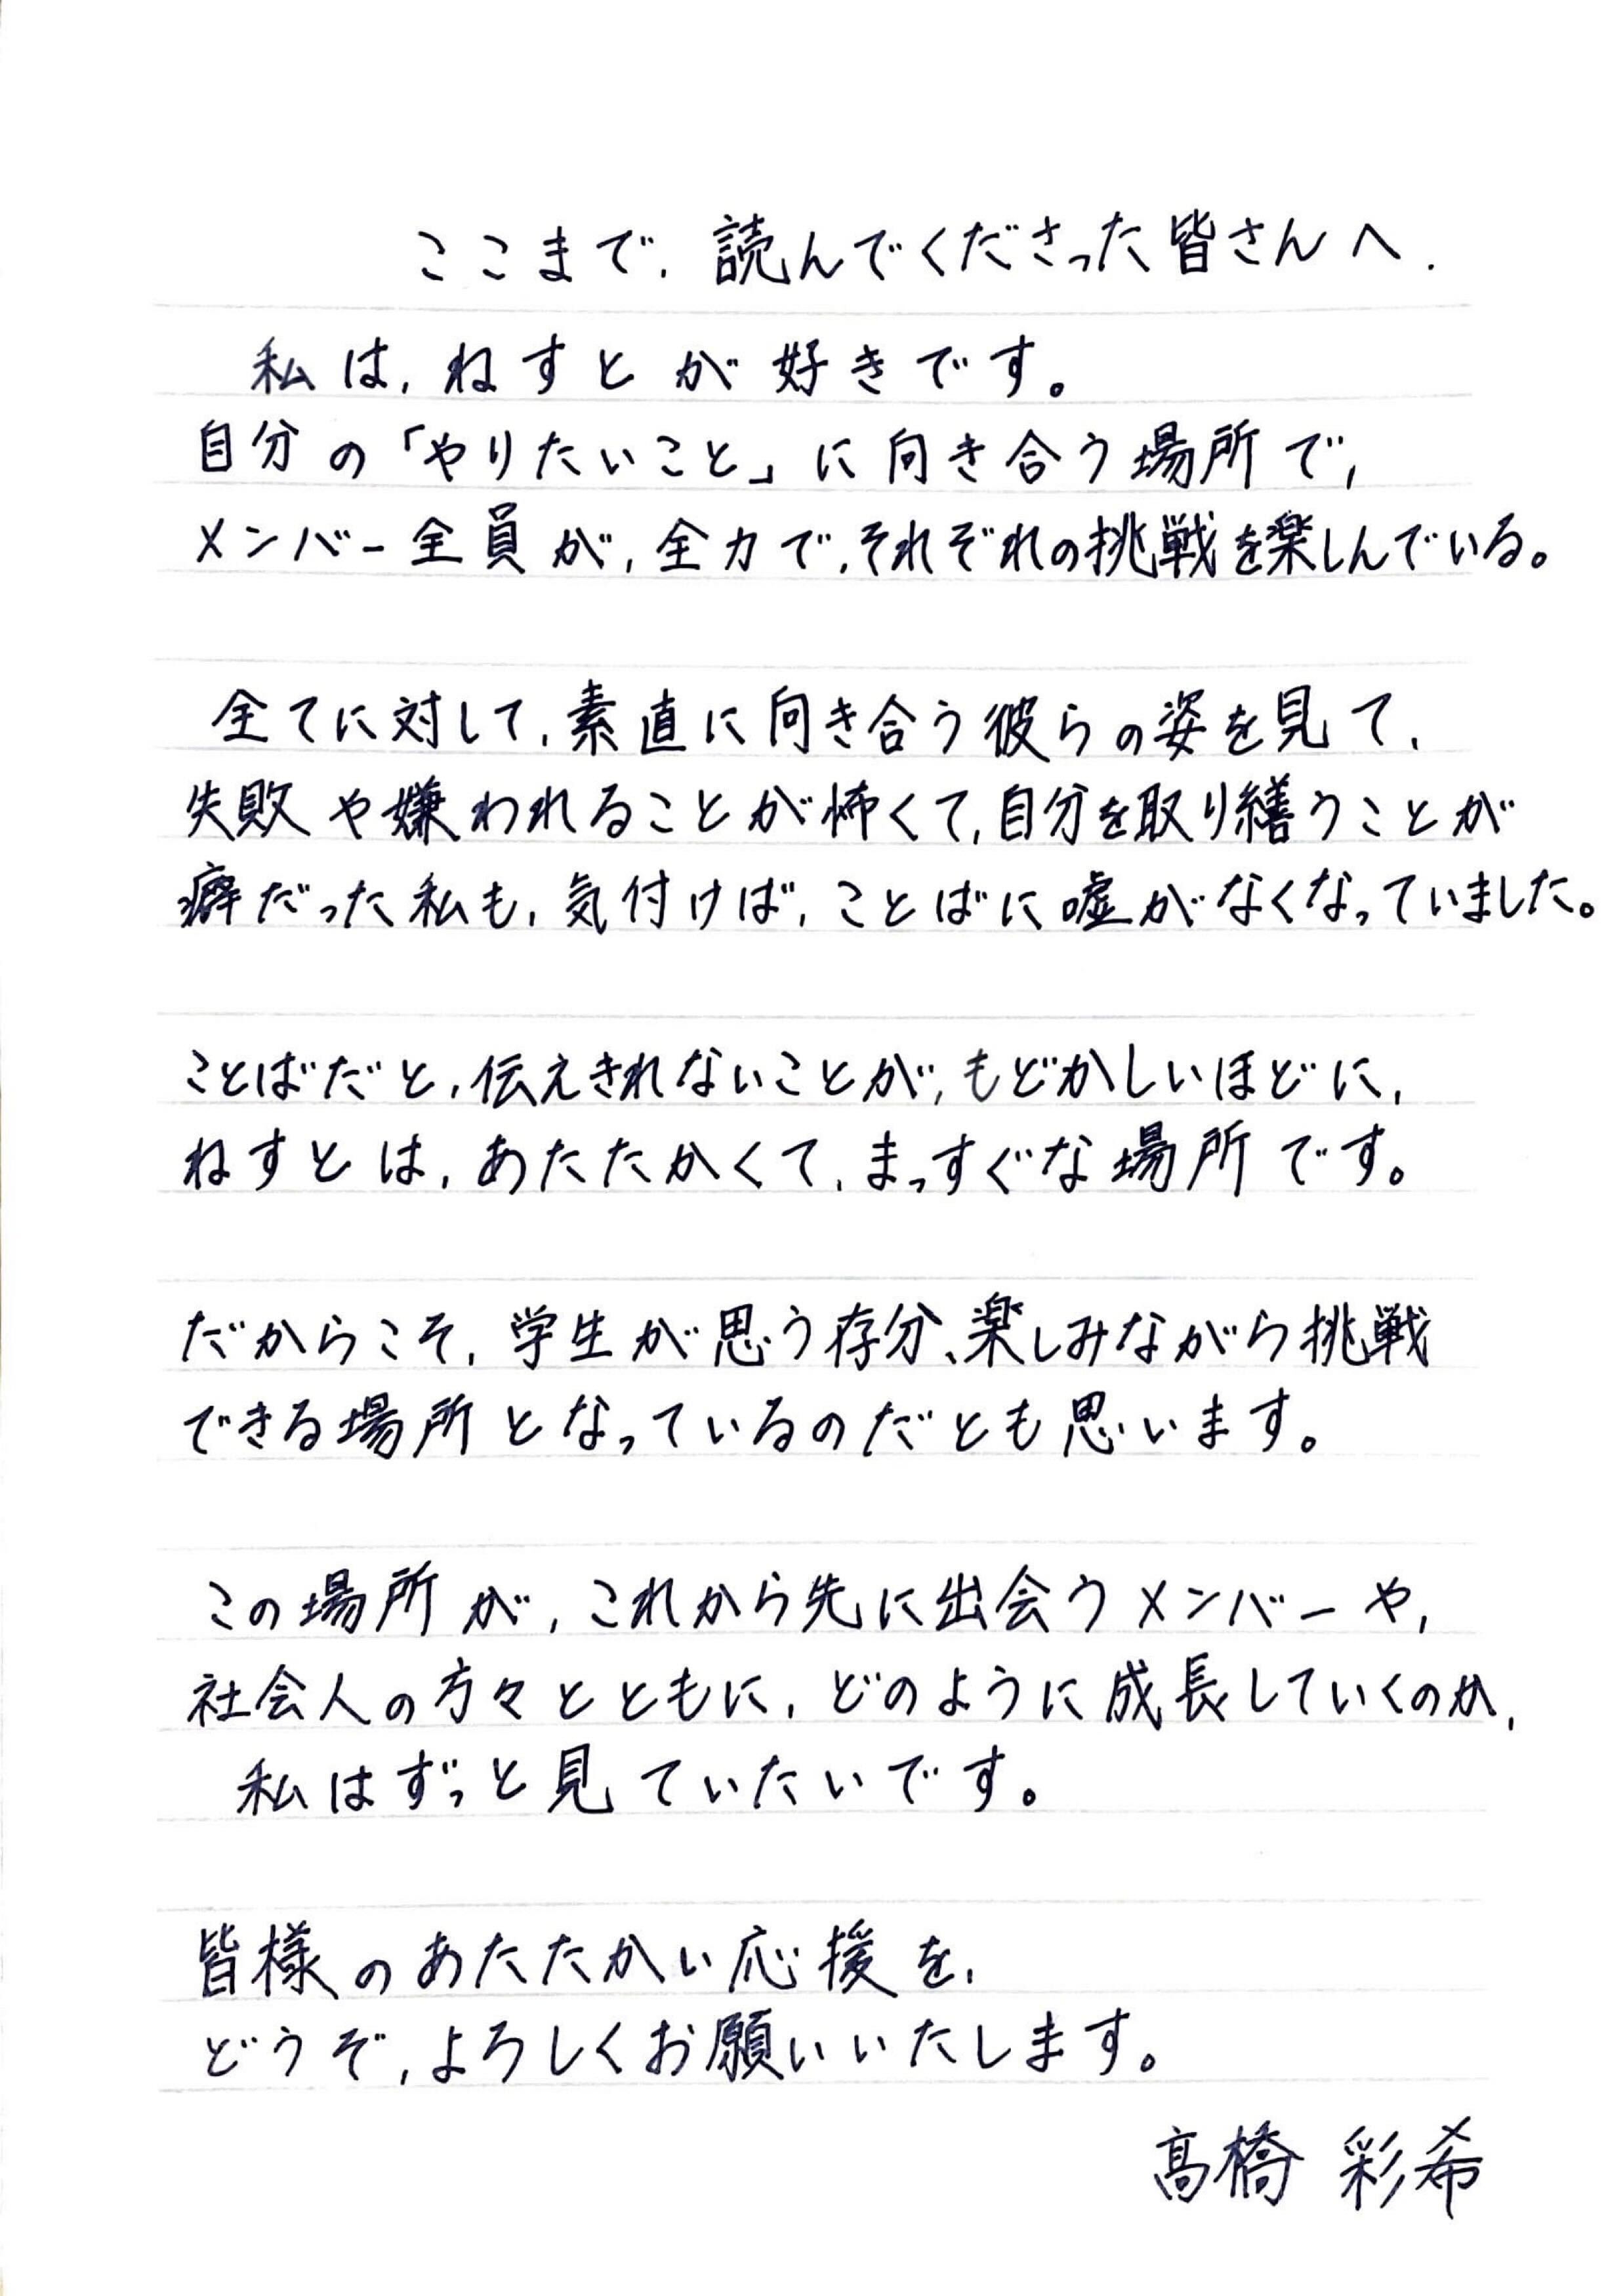 ここまで、読んでくださった皆さんへ.
私は、ねすとが好きです。
自分の「やりたいこと」に向き合う場所で、
メンバー全員が、全力で、それぞれの挑戦を楽しんでいる。
全てに対して、素直に向き合う彼らの姿を見て、
失敗や嫌われることが怖くて、自分を取り繕うことが
癖だった私も、気付けば、ことばに嘘がなくなっていました。
ことばだと、伝えきれないことが、もどかしいほどに、
ねすとは、あたたかくて、まっすぐな場所です。
だからこそ、学生が思う存分、楽しみながら挑戦
できる場所となっているのだとも思います。
この場所が、これから先に出会うメンバーや、
社会人の方々とともに、どのように成長していくのか、
私はずっと見ていたいです。
皆様のあたたかい応援を、
どうぞ、よろしくお願いいたします。
髙橋 彩希